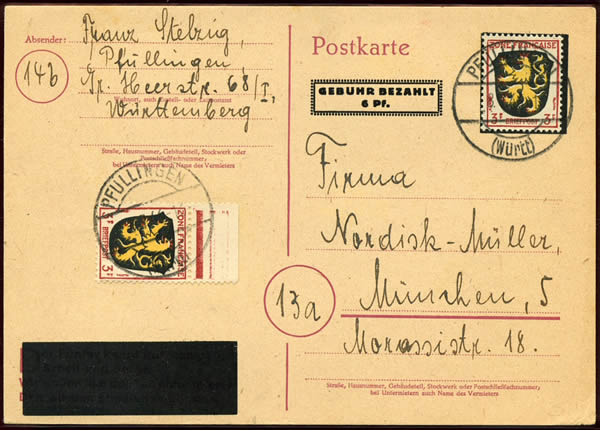 Absender: Franz Stelzig,
14b Pfullingen
Gr. Heerstr. 68/I,
Wohnort, auch Zustell- oder Leitpostamt
Württemberg
Straße, Hausnummer, Gebäudeteil, Stockwerk oder
Postschließfachnummer,
bei Untermietern auch Name des Vermieters
PFULLINGEN
ZONE FRANÇAISE
BRIEFPOST
3 F
Postkarte
GEBÜHR BEZAHLT
6 Pf.
ZONE FRANÇAISE
3 F BRIEFPOST 3 F
(WÜRTT)
Firma
Nordisk-Müller,
13a München, 5
Morassistr. 18.
Straße, Hausnummer, Gebäudeteil, Stockwerk oder Postschließfachnummer,
bei Untermietern auch Name des Vermieters